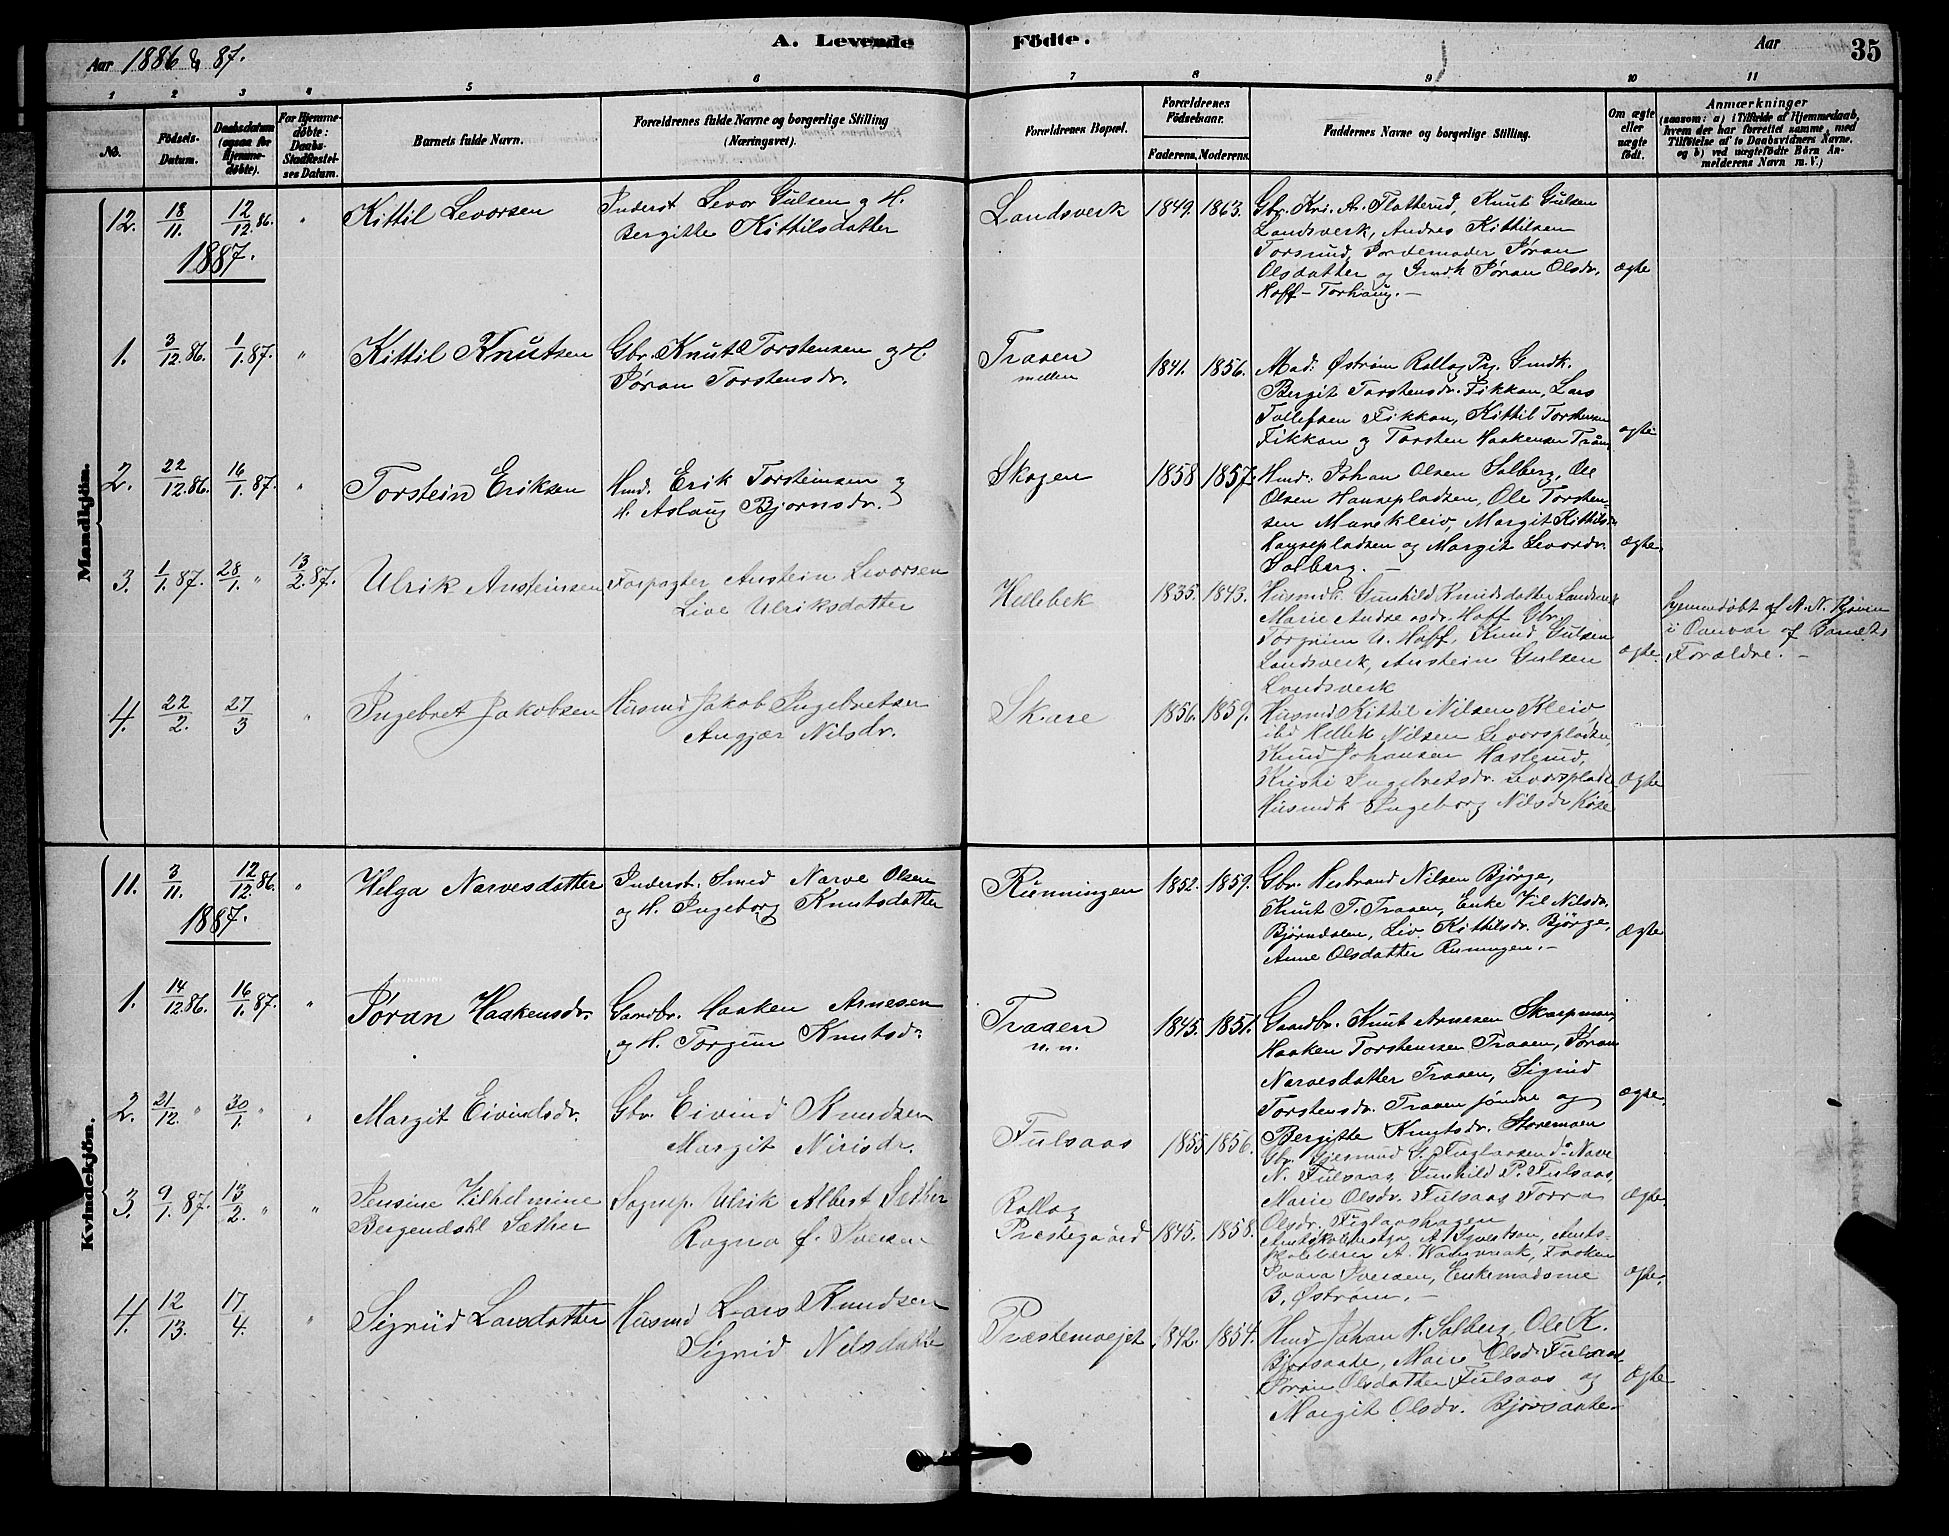 Aar 1886 & 87.
A. Levende Födte.
Aar
35
1 2 3 4 5 6 7 8 9 10 11
No.
Födsels-Datum.
Daabsdatum (ogsaa for Hjemmedøbte).
For Hjemmedøbte: Daabs-Stadfæstelses Datum.
Barnets fulde Navn.
Forældrenes fulde Navne og borgerlige Stilling (Næringsvei).
Forældrenes Bopæl.
Forældrenes Födselsaar.
Faderens. Moderens.
Faddernes Navne og borgerlige Stilling.
Om ægte eller uægte født.
Anmærkninger
(saasom: a) i Tilfælde af Hjemmedaab, hvem der har forrettet samme, med Tilföielse af to Daabsvidners Navne, og b) ved uægtefødte Börn Anmelderens Navn m. V.)
Mandkjön.
12. 18/11. 12/12 86. " Kittil Levorsen
Inderst Levor Gulsen og H.
Bergitte Kittilsdatter
Landsverk 1849. 1863.
Gbr. Kri. A. Flatterud, Knut Gulsen
Landsverk, Andres Kittilsen
Torsrud, Jordemoder Jøran
Olsdatter og Gmdk Jøran Olsdr.
Hoff-Torhaug.-
ægte
1887.
1. 3/12.86. 1/1.87. " Kittil Knutsen
Gbr. Knut Torstensen og H.
Jøran Torstensdr.
Traaen
mellem
1841. 1856.
Mad: Østrøm Rollag Pg. Gmdk.
Bergit Torstensdr. Fikkan, Lars
Tollefsen Fikkan, Kittil Torstensen
Fikkan og Torsten Haakensen Traaen
ægte
2. 22/12.86. 16/1.87. " Torstein Eriksen
Hmd. Erik Torsteinsen og
H. Aslaug Bjornsdr.
Skogen 1858 1857.
Hmd: Johan Olsen Solberg, Ole
Olsen Hansepladsen, Ole Torsten-
sen Maneskleiv, Margit Kittilsdr
Hansepladsen og Margit Levordr.
Solberg.-
ægte.
3. 1/1.87. 28/1. " 13/2.87. Ulrik Austeinsen
Forpagter Austein Levorsen
Live Ulriksdatter
Hellebek 1835. 1843.
Husmdk. Gunhild Knudsdatter Landsverk
Marie Andreasdr. Hoff Gbr.
Torgrim U. Hoff, Knud Gulsen
Landsverk, Austein Gulsen
Landsverk
ægte.
hjemmedøbt af A. N.
i Nærvær af Barnets
Forældre.-
4. 22/2. 27/3 " Ingebret Jakobsen
Husmd Jakob Ingebretsen
Angjær Nilsdr.
Skare 1856. 1859.
Husmd Kittil Nilsen Kleiv,
ibd Hellik Nilsen Levorspladsen,
Knud Johansen Haslerud,
Kristi Ingebretsdr. Levorsplads.
Husmdk Ingeborg Nilsdr
ægte
Kvindekjön.
11. 3/11. 12/12.86. " Helga Narvesdatter
Inderst. Smed Narve Olsen
og H. Ingeborg Knutsdatter
Runningen 1852. 1859.
Gbr. Herbrand Nilsen Bjørge,
Knut T. Traaen, Enke Vil Nilsdr.
Bjørndalen, Liv Kittilsdr. Bjørge,
Anne Olsdatter Runningen.-
ægte
1887.
1. 14/12.86. 16/1.87. " Jøran Haakensdr.
Gaardbr. Haaken Arnesen
og H. Torgun Knutsdr.
Traaen
n. n.
1845. 1851.
Gaardbr. Knut Arnesen Skarpmoen
Haaken Torstensen Traaen, Jøran
Narvesdatter Traaen, Sigrid
Torstensdr. Traaen søndre og
Bergitte Knutsdr. Storemoen
ægte.
2. 21/12. " 30/1. " " Margit Eivindsdr.
Gbr. Eivind Knudsen
Margit Nirisdr.
Fulsaas 1855 1856.
Gbr. Gjermund G. do. Nave
N. Fulsaas, Gunhild P. Fulsaas,
Marie Olsdr. Fulsaas Torra
Olsdr.
ægte.
3. 9/1.87. 13/2. " " Jensine Vilhelmine
Bergendahl Sæther
Sognep. Ulrik Albert Sæther
Ragna f. Iversen
Rollag
Præstegaard 1845. 1858.
Iversen, Enkemadame
B. Østrøm.-
ægte.
4. 12/13. 17/4. " Sigrid Larsdatter
Husmd Lars Knudsen
Sigrid Nilsdatter
Præstemoejet 1842. 1854.
Hmd Johan N. Solberg, Ole K.
Bjørsaate, Marie Olsdr Fulsaas,
Jøran Olsdatter Fulsaas og
Margit Olsdr. Bjørsaate.
ægte